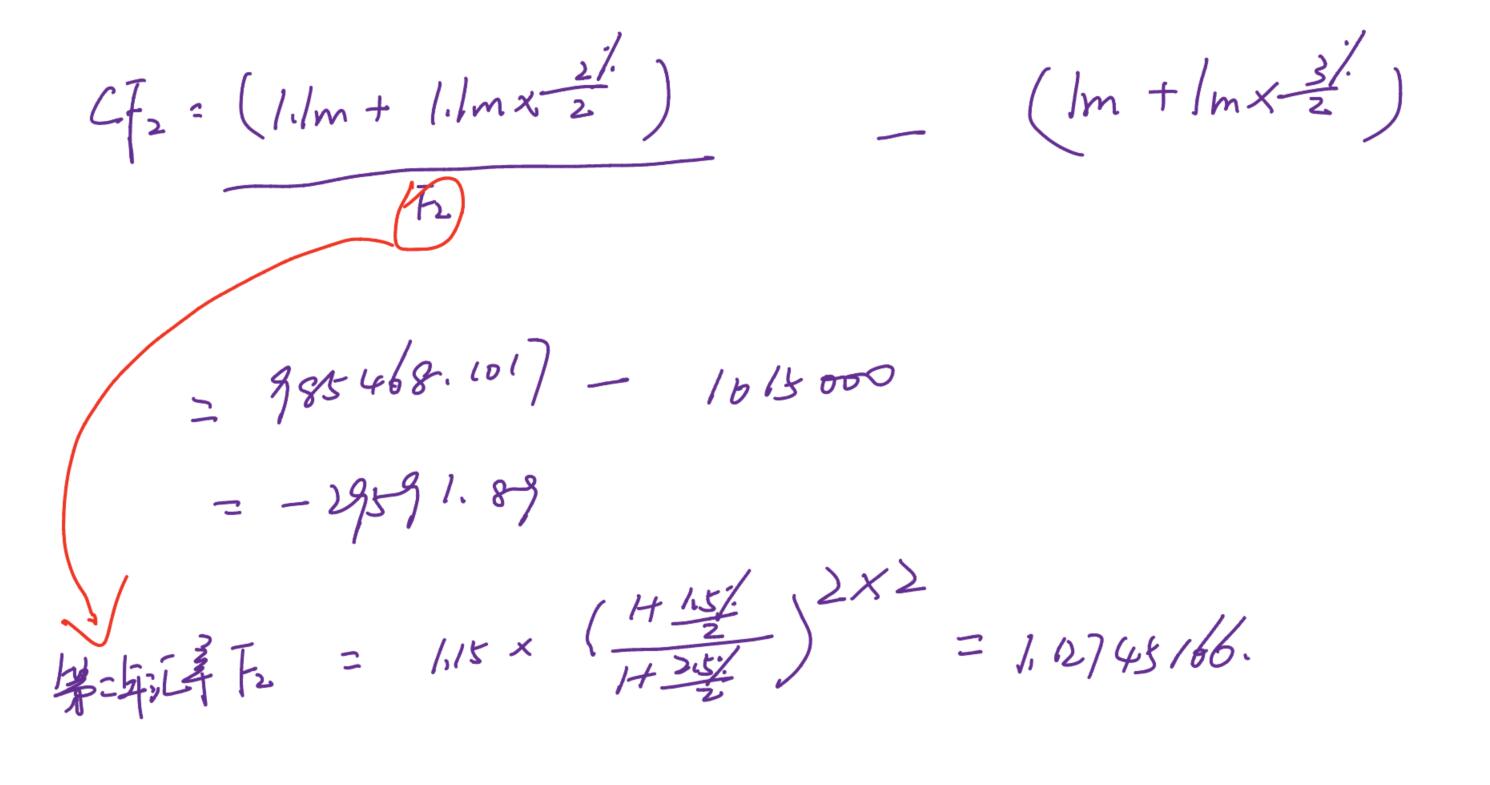 CF₂ = (1.1m + 1.1m × 2%/2) / F₂ - (1m + 1m × 3%/2)
= 985468.1017 - 1015000
= -29591.89
第二年汇率 F₂ = 1.15 × ((1+1.5%/2)/(1+2.5%/2))^2×2 = 1.12745166.